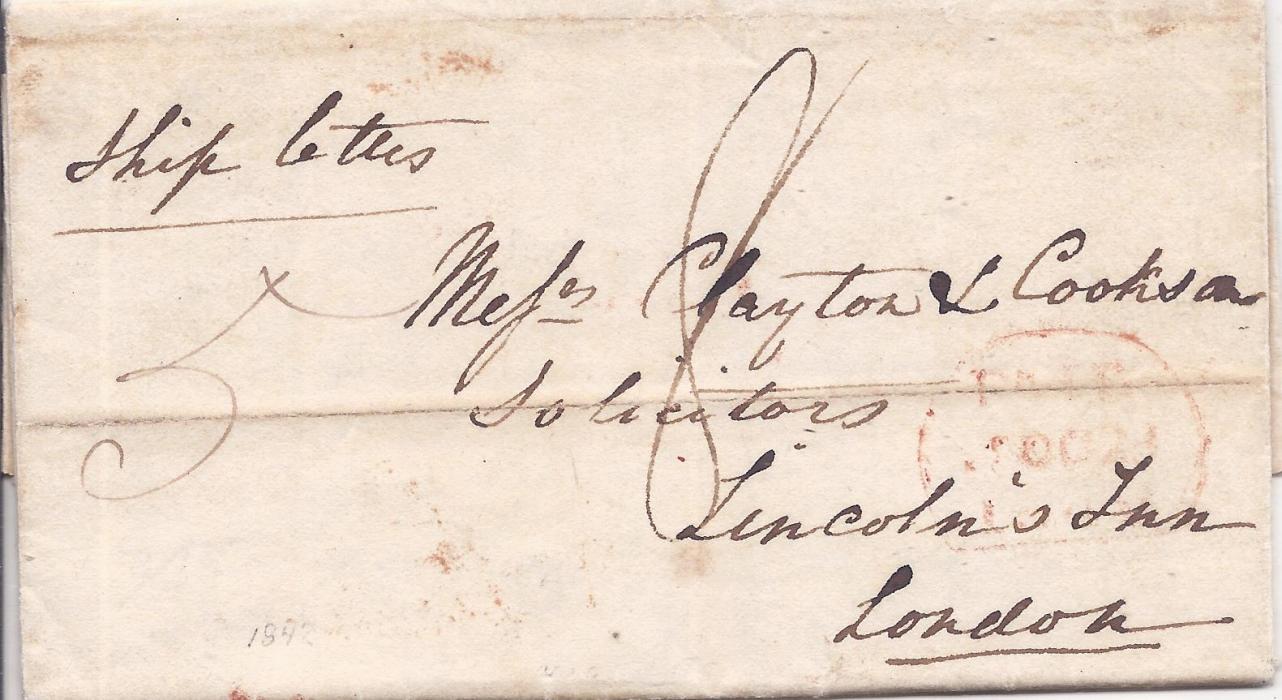 Ship letter
8
5
Messrs Clayton & Cookson
Solicitors
Lincoln's Inn
London
1842